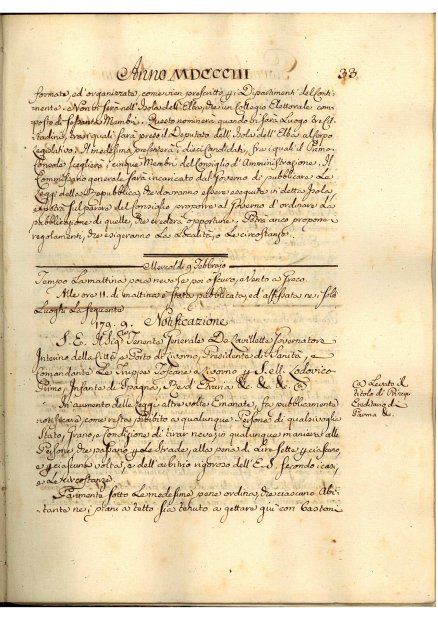 Anno MDCCCIII
33
formate, ed organizzate, come vien prescritto p i Dipartimenti del Conti-
nente. Non vi sarà nell'Isola dell'Elba, che un Collegio Elettorale com-
posto di Membri. Questo nominerà quando vi sarà Luogo
fra i quali sarà preso il Deputato dell'Isola dell'Elba al Corpo
Legislativo. Il medesimo presenterà dieci Candidati, fra i quali il Primo
Console sceglierà i cinque Membri del Consiglio d'Amministrazione. Il
Commissario generale sarà incaricato dal Governo di pubblicare Le
Leggi della Repubblica, che dovranno essere eseguite in detta Isola
sul parere del Consiglio proporre al Governo d'ordinare La
Pubblicazione di quelle, che crederà opportune. Potrà anco proporre i
regolamenti, che esigeranno La Località, o Le circostanze.
Mercoldì 9 Febbrajo
Tempo La mattina poca neve, poi oscuro, e Vento a Greco.
Alle ore 11. di mattina è stata pubblicata, ed affissata ne i soliti
Luoghi La seguente
179. 9. Notificazione
S. E. Il Sig. Tenente Generale De Lavillette Governatore
Interino della Città, e Porto di Livorno, Presidente di Sanità, e
Comandante Le Truppe Toscane a Livorno p S. M. Lodovico
Primo, Infante di Spagna, e Re d'Etruria &c. &c. &c. (a)
In aumento delle Leggi altre volte Emanate, fa pubblicamente
notificare come resta proibito a qualunque Persona di qualsivoglia
Stato, Grado, e Condizione di tirar neve, in qualunque maniera alle
Persone, che passano p Le Strade, alla pena di Lire Sette p ciascuno,
e p ciascuna volta, e dell'arbitrio rigoroso dell'E. S. secondo i casi,
e Le Circostanze.
Parimente sotto Le medesime pene ordina, che ciascuno Abi-
tante ne i piani a tetto sia tenuto a gettare giù con bastoni
(a) Levato il
titolo di Principe
Ereditario di
Parma &c.